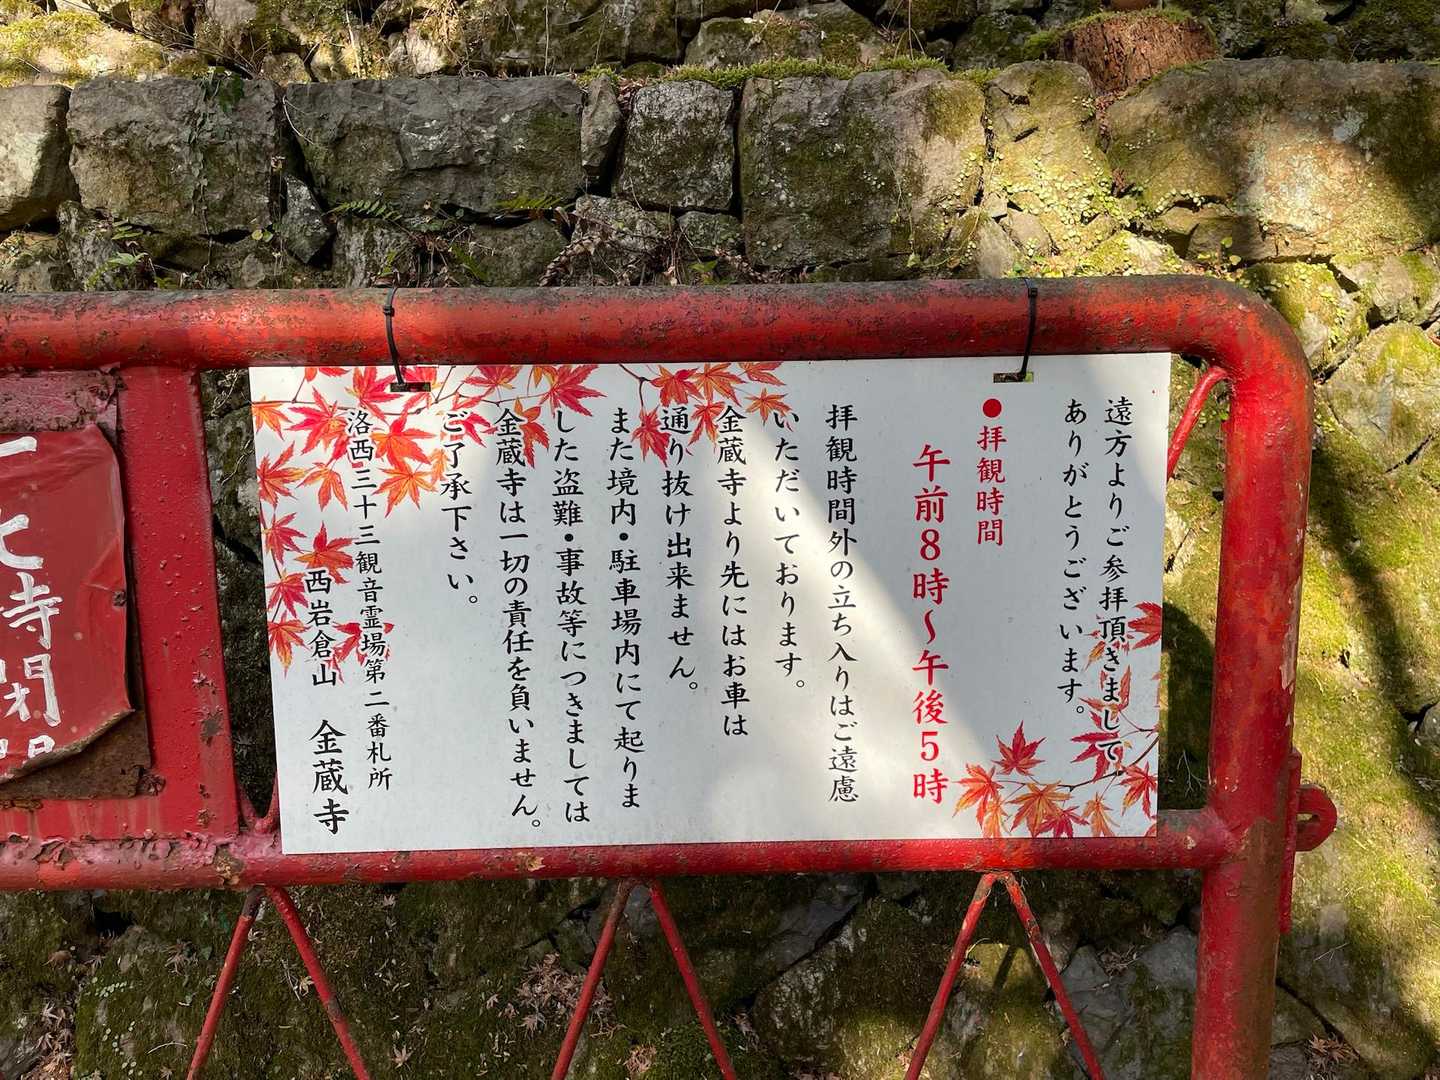 遠方よりご参拝頂きまして、
ありがとうございます。
●拝観時間
午前8時～午後5時
拝観時間外の立ち入りはご遠慮
いただいております。
金蔵寺より先にはお車は
通り抜け出来ません。
また境内・駐車場内にて起りま
した盗難・事故等につきましては
金蔵寺は一切の責任を負いません。
ご了承下さい。
洛西三十三観音霊場第二番札所
西岩倉山 金蔵寺